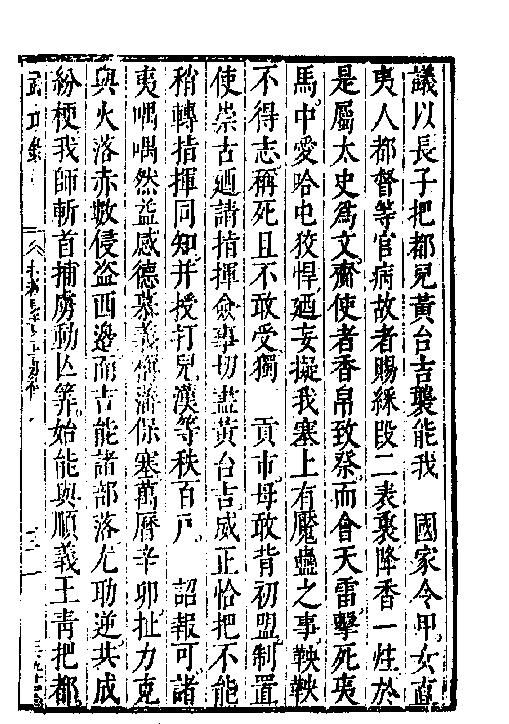 議以長子把都兒黃台吉襲能我　國家令甲女直
夷人都督等官病故者賜綵段二表裏降香一炷於
是屬太史爲文齎使者香帛致祭而會天雷擊死夷
馬中愛哈屯狡悍廼妄擬我塞上有魘蠱之事鞅鞅
不得志稱死且不敢受獨　貢市毋敢背初盟制置
使崇古廼請指揮僉事切盡黃台吉威正恰把不能
稍轉指揮同知并授打兒漢等秩百戶　詔報可諸
夷喁喁然益感德慕義稱藩保塞萬曆辛卯扯力克
與火落赤數侵盜西邊而吉能諸部落尤助逆共成
紛梗我師斬首捕虜動以筭始能與順義王青把都
武功錄